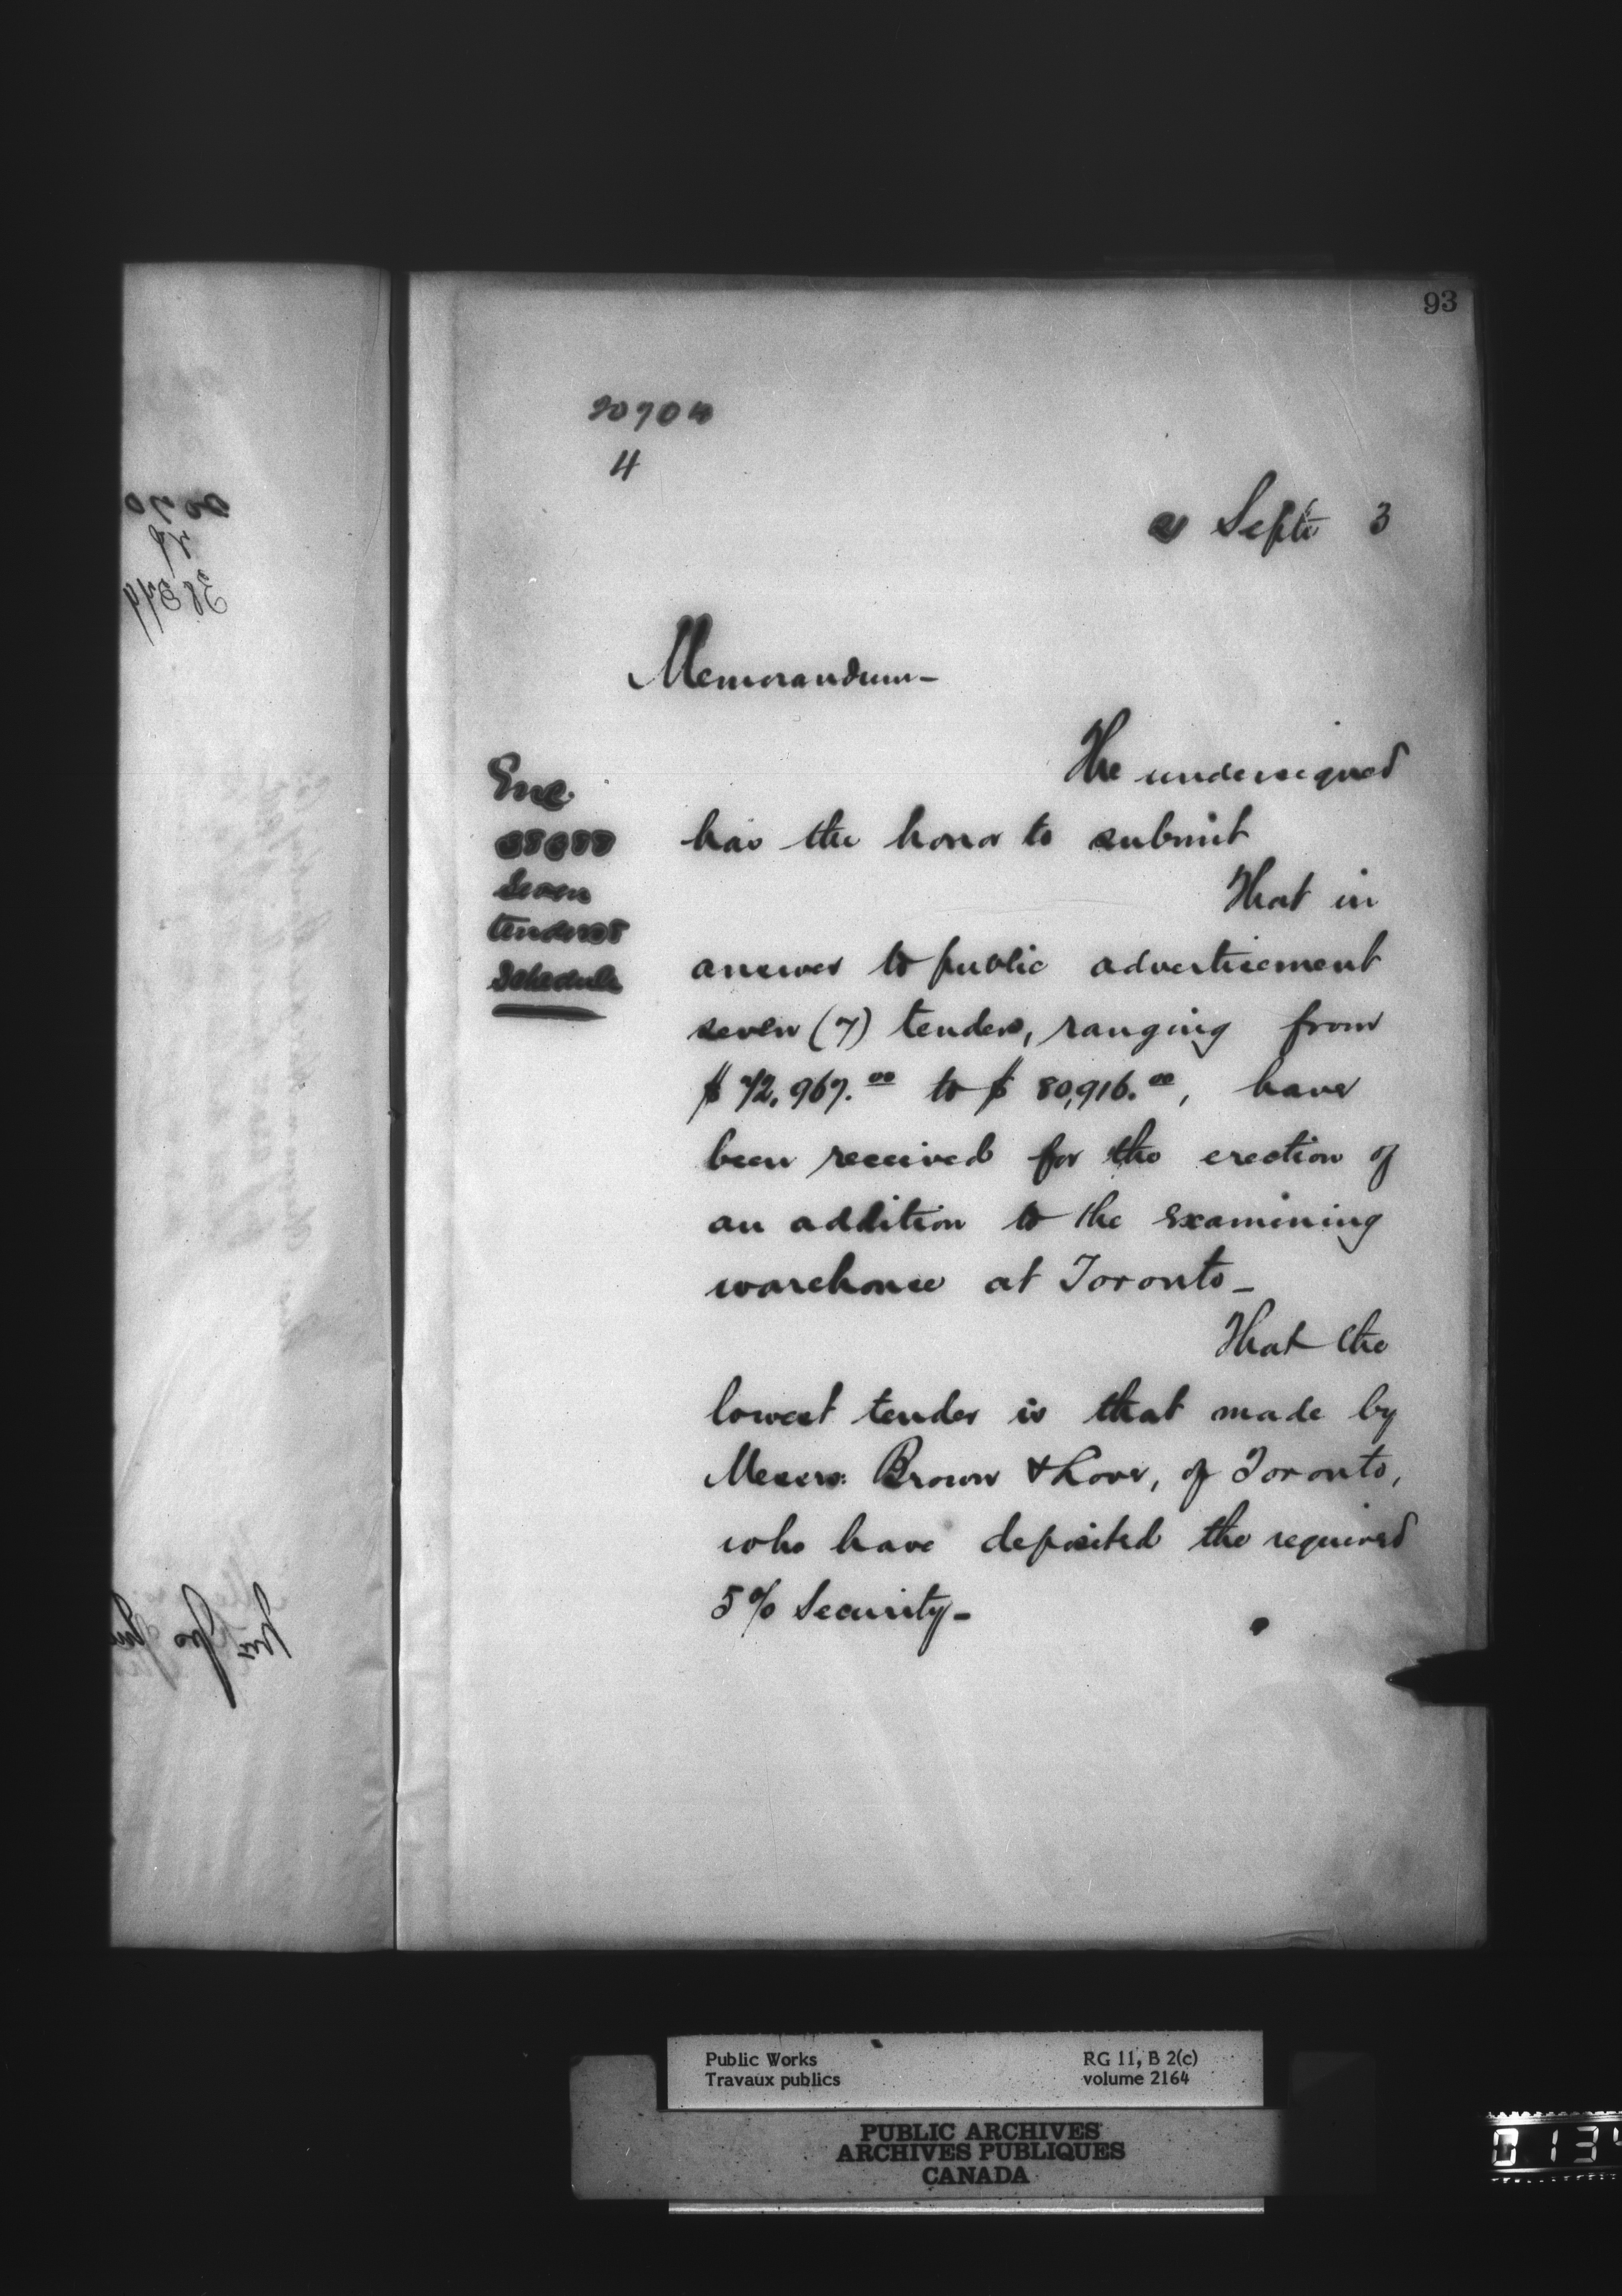 93
4
Septr 3
Memorandum-
The undersigned
Enc
has the honor to submit
Seven
tenders
Schedule
That in
answer to public advertisement
seven (7) tenders, ranging from
$ 72,967.00 to $ 80,916.00, have
been received for the erection of
an addition to the Examining
warehouse at Toronto-
That the
lowest tender is that made by
Messrs: Brown & Love, of Toronto,
who have deposited the required
5% Security-
Public Works
Travaux publics
RG 11, B 2(c)
volume 2164
PUBLIC ARCHIVES
ARCHIVES PUBLIQUES
CANADA